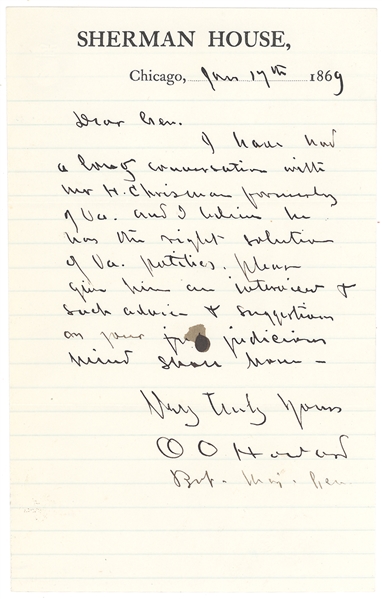 SHERMAN HOUSE,
Chicago, Jan 17th 1869
Dear Gen.
I have had
a long conversation with
Mr H. Chrisman formerly
of Va. and I believe he
has the right solution
of Va. politics. please
give him an interview &
such advice & suggestions
as your judicious
mind shall have -
Very Truly Yours
O O Howard
Bvt. Maj. Gen.